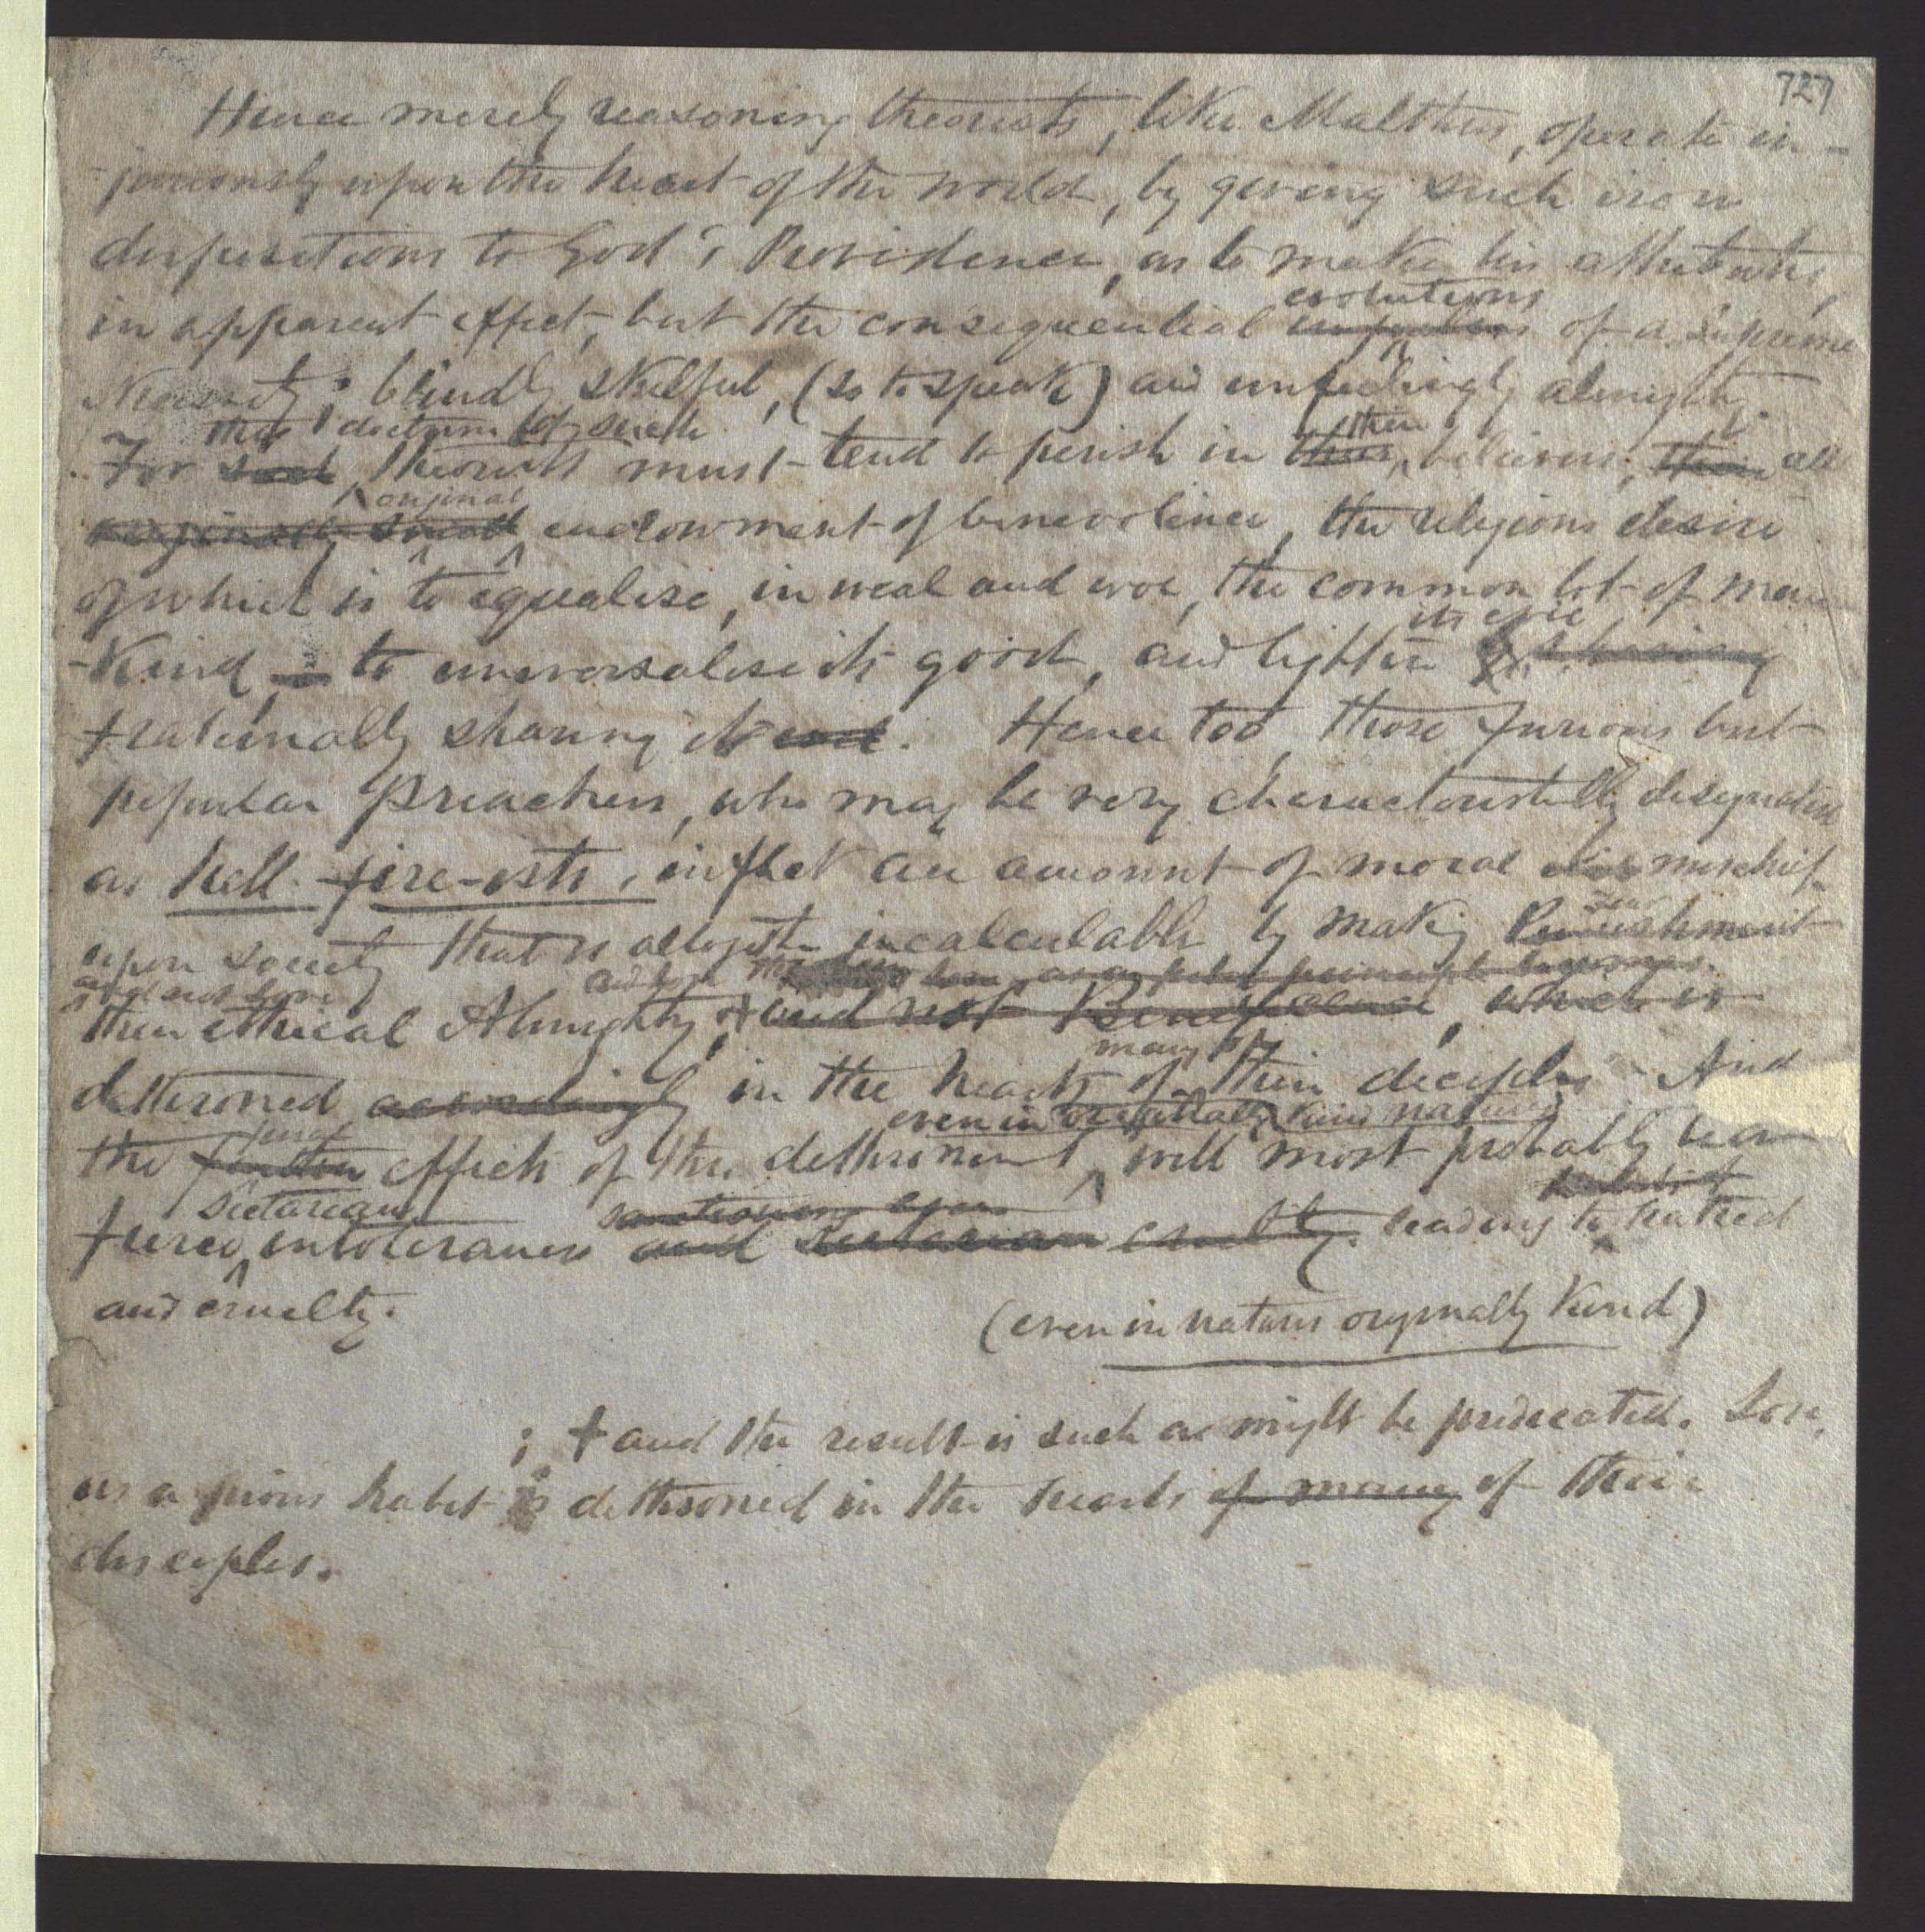 727
Hence merely reasoning theorists, like Malthus, operate in-
juriously upon the heart of the world, by giving such iron
dispositions to God's Providence, as to make his attributes,
evolutions
in apparent effect, but the consequential of a supreme
Necessity: blindly skilful, (so to speak) and unfeelingly almighty.
the doctrine of such
their
For such theorists must tend to perish in their believers, their all
original
originally small endowment of benevolence, the religious desire
of which is to equalise, in weal and woe, the common lot of man
its evil
-kind – to universalise its good, and lighten by sharing
fraternally sharing it and. Hence too, those furious but
popular Preachers, who may be very characteristically designated
as hell-fire-ists, inflict an amount of moral mischief
fear
upon society that is altogether incalculable, by making Punishment
and not love
their ethical Almighty; + and not Beneficence, which is
many of
dethroned accordingly in the hearts of their deciples. And
even in originally kind natures
final
the further effects of this dethronement will most probably be a
sectarian
sanctioning even
habits of
fierce intolerance and sectarian cruelty. leading to hatred
and cruelty.
(even in natures originally kind)
; + and the result is such as might be predicated. Love,
as a pious habit is dethroned in the hearts of many of their
disciples.